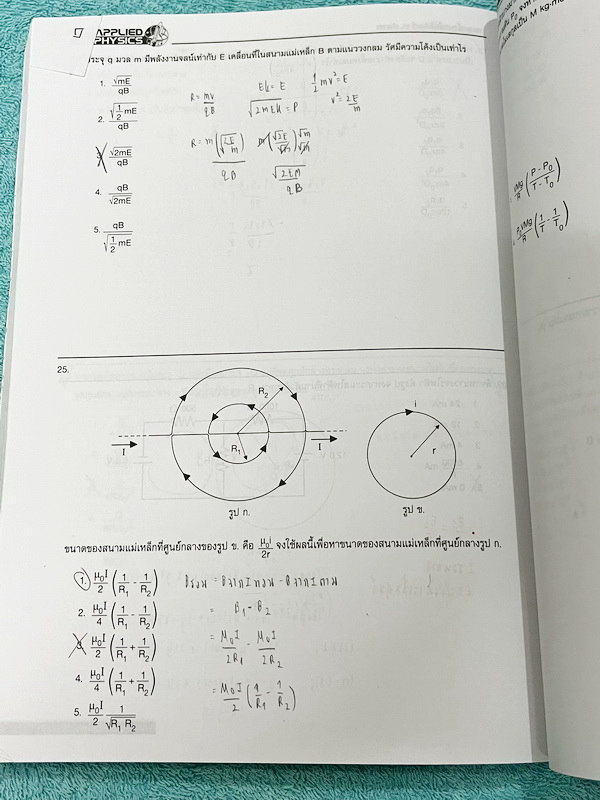 APPLIED
PHYSICS
ระจุ q มวล m มีพลังงานจลน์เท่ากับ E เคลื่อนที่ในสนามแม่เหล็ก B ตามแนววงกลม รัศมีความโค้งเป็นเท่าไร
1. √mE / qB
2. √(1/2 mE) / qB
3. √2mE / qB
4. qB / √2mE
5. qB / √(1/2 mE)
R = mv / qB
Ek = E
1/2 mv² = E
√2mEk = P
v² = 2E / m
R = m(√(2E/m)) / qB
m(√2E / √m) √m / √m
√2EM / qB
25.
R₂
R₁
I
I
รูป ก.
i
r
รูป ข.
ขนาดของสนามแม่เหล็กที่ศูนย์กลางของรูป ข. คือ μ₀i / 2r จงใช้ผลนี้เพื่อหาขนาดของสนามแม่เหล็กที่ศูนย์กลางรูป ก.
1. μ₀I/2 (1/R₁ - 1/R₂)
2. μ₀I/4 (1/R₁ - 1/R₂)
3. μ₀I/2 (1/R₁ + 1/R₂)
4. μ₀I/4 (1/R₁ + 1/R₂)
5. μ₀I/2 1/√R₁ R₂
Bรวม = Bจาก I ทวน - Bจาก I ตาม
= B₁ - B₂
= μ₀I / 2R₁ - μ₀I / 2R₂
= μ₀I/2 (1/R₁ - 1/R₂)
VMg/R (P - P₀ / T - T₀)
P₀VMg/R (1/T - 1/T₀)